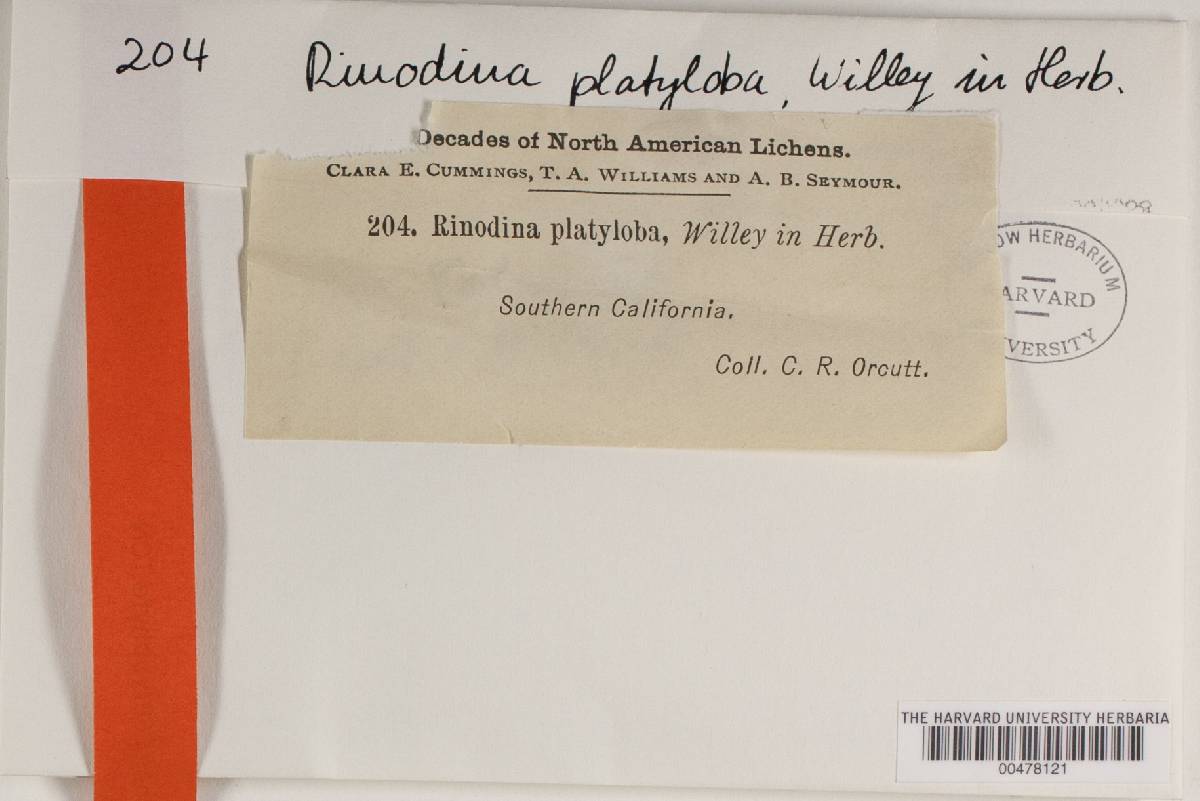 204 Rinodina platyloba, Willey in Herb.
Decades of North American Lichens.
CLARA E. CUMMINGS, T. A. WILLIAMS AND A. B. SEYMOUR.
204. Rinodina platyloba, Willey in Herb.
Southern California.
Coll. C. R. Orcutt.
OW HERBARIUM
ARVARD
VERSITY
THE HARVARD UNIVERSITY HERBARIA
00478121